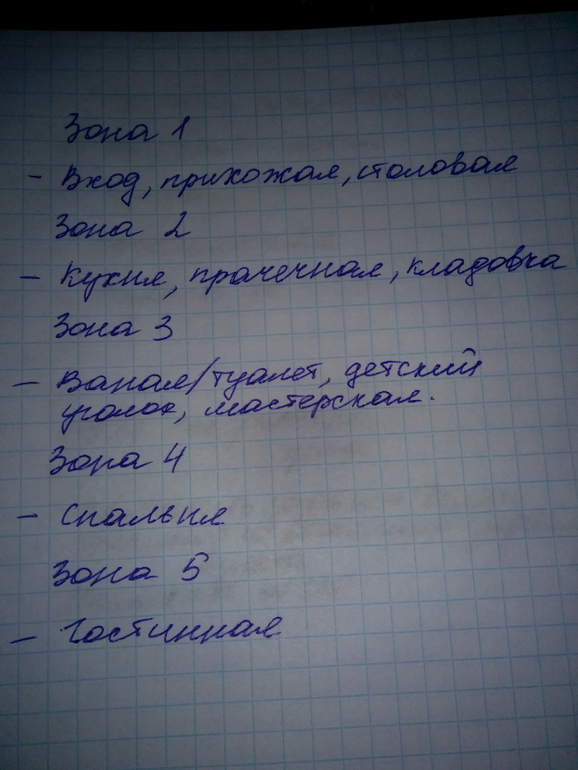 Зона 1
- Вход, прихожая, столовая
Зона 2
- Кухня, прачечная, кладовка
Зона 3
- Ваная/туалет, детский
уголок, мастерская.
Зона 4
- Спальня
Зона 5
- Гостинная